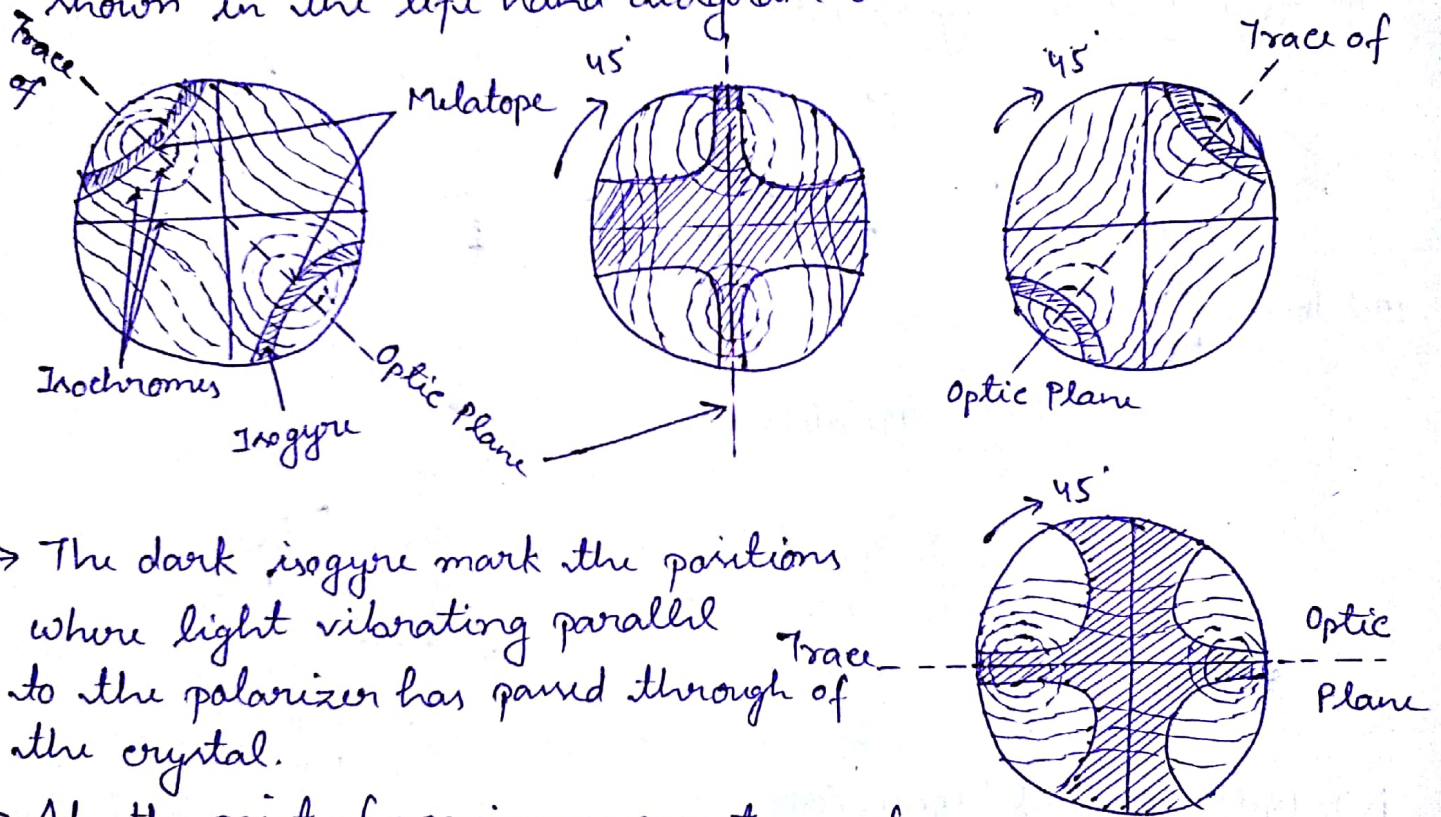 shown in the left hand diagram
Trace of
45°
45°
Trace of
Melatope
Isochromes
Isogyre
Optic Plane
Optic Plane
45°
→ The dark isogyre mark the positions
where light vibrating parallel
to the polarizer has passed through of
the crystal.
Trace
Optic
Plane